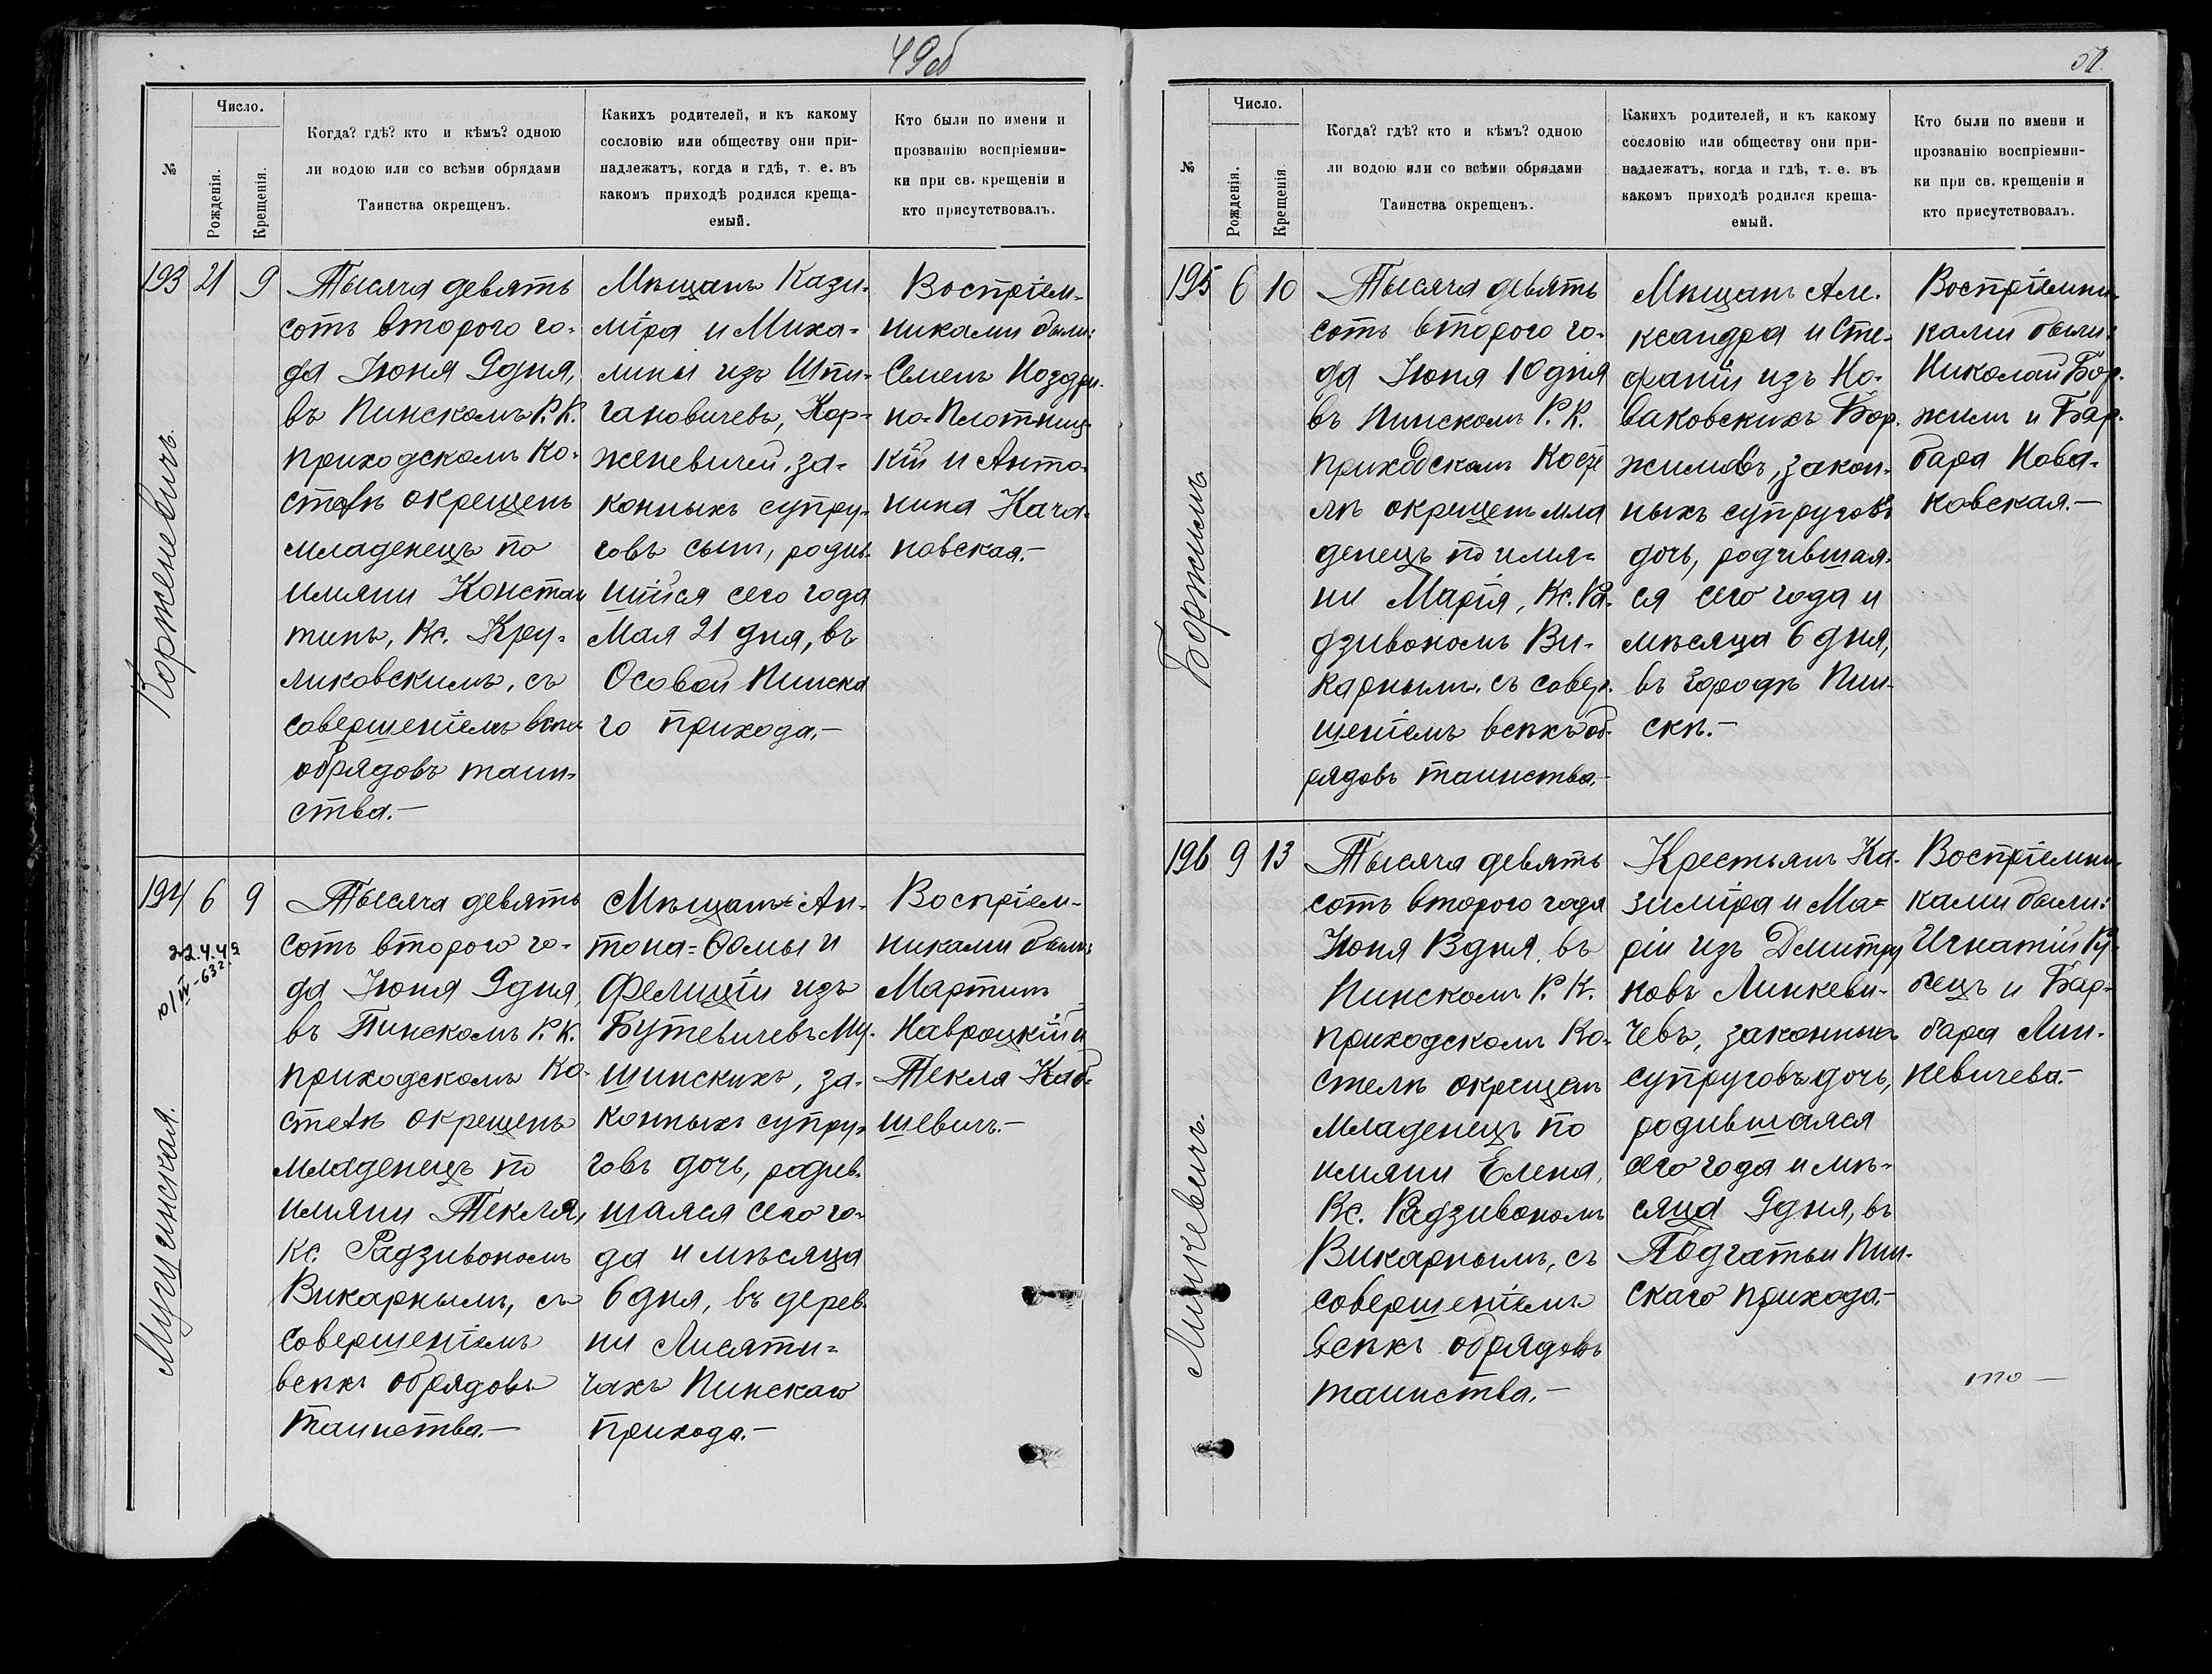 49об
№
Число.
Рожденія.
Крещенія.
Когда? гдѣ? кто и кѣмъ? одною
ли водою или со всѣми обрядами
Таинства окрещенъ.
Какихъ родителей, и къ какому
сословію или обществу они при-
надлежатъ, когда и гдѣ, т. е. въ
какомъ приходѣ родился креща-
емый.
Кто были по имени и
прозванію воспріемни-
ки при св. крещеніи и
кто присутствовалъ.
193
21
9
Корженевичъ.
Тысяча девять
сотъ второго го-
да Іюня 9 дня,
въ Пинскомъ Р. К.
приходскомъ Ко-
стелѣ окрещенъ
младенецъ по
имяни Констан
тинъ, Кс. Кру-
ликовскимъ, съ
совершеніемъ всѣхъ
обрядовъ таин-
ства.—
Мѣщанъ Кази-
міра и Миха-
лины изъ Шпи-
гановичевъ, Кор-
женевичей, за-
конныхъ супру-
говъ сынъ, родив-
шійся сего года
Мая 21 дня, въ
Особой Пинска
го прихода.—
Воспріем-
никами были:
Семенъ Ноздри-
но-Плотниц-
кій и Анто-
нина Кача-
новская.—
194
6
9
22.4.49
Мушинская.
Тысяча девять
сотъ второго го-
да Іюня 9 дня,
въ Пинскомъ Р. К.
приходскомъ Ко-
стелѣ окрещенъ
младенецъ по
имяни Текля,
Кс. Радзивономъ
Викарнымъ, съ
совершеніемъ
всѣхъ обрядовъ
таинства.—
Мѣщанъ Ан-
тона-Ѳомы и
Фелиціи изъ
Бутевичевъ Му-
шинскихъ, за-
конныхъ супру-
говъ дочь, родив-
шаяся сего го-
да и мѣсяца
6 дня, въ дерев-
ни Лисяти-
чахъ Пинскаго
прихода.—
Воспріем-
никами были:
Мартинъ
Навроцкій и
Текла Каб-
шевичъ.—
№
Число.
Рожденія.
Крещенія.
Когда? гдѣ? кто и кѣмъ? одною
ли водою или со всѣми обрядами
Таинства окрещенъ.
Какихъ родителей, и къ какому
сословію или обществу они при-
надлежатъ, когда и гдѣ, т. е. въ
какомъ приходѣ родился креща-
емый.
Кто были по имени и
прозванію воспріемни-
ки при св. крещеніи и
кто присутствовалъ.
195
6
10
Боржимъ
Тысяча девять
сотъ второго го-
да Іюня 10 дня
въ Пинскомъ Р. К.
приходскомъ Косте
лѣ окрещенъ мла
денецъ по имя-
ни Марія, Кс. Ра-
дзивономъ Ви-
карнымъ, съ совер-
шеніемъ всѣхъ об-
рядовъ таинства.—
Мѣщанъ Але-
ксандра и Сте-
фаніи изъ Но-
ваковскихъ Бор-
жимовъ, закон-
ныхъ супруговъ
дочь, родившая-
ся сего года и
мѣсяца 6 дня,
въ городѣ Пин-
скѣ.—
Воспріемни-
ками были:
Николай Бор-
жимъ и Бар-
бара Нова-
ковская.—
196
9
13
Линкевичъ.
Тысяча девять
сотъ второго года
Іюня 13 дня, въ
Пинскомъ Р. К.
приходскомъ Ко-
стелѣ окрещенъ
младенецъ по
имяни Елена,
Кс. Радзивономъ
Викарнымъ, съ
совершеніемъ
всѣхъ обрядовъ
таинства.—
Крестьянъ Ка-
зиміра и Ма-
ріи изъ Дмитру
ковъ Линкеви-
чевъ, законныхъ
супруговъ дочь,
родившаяся
сего года и мѣ-
сяца 9 дня, въ
Подгатьи Пин-
скаго прихода.—
Воспріемни-
ками были:
Игнатій Ру-
бецъ и Бар-
бара Лин-
кевичева.—